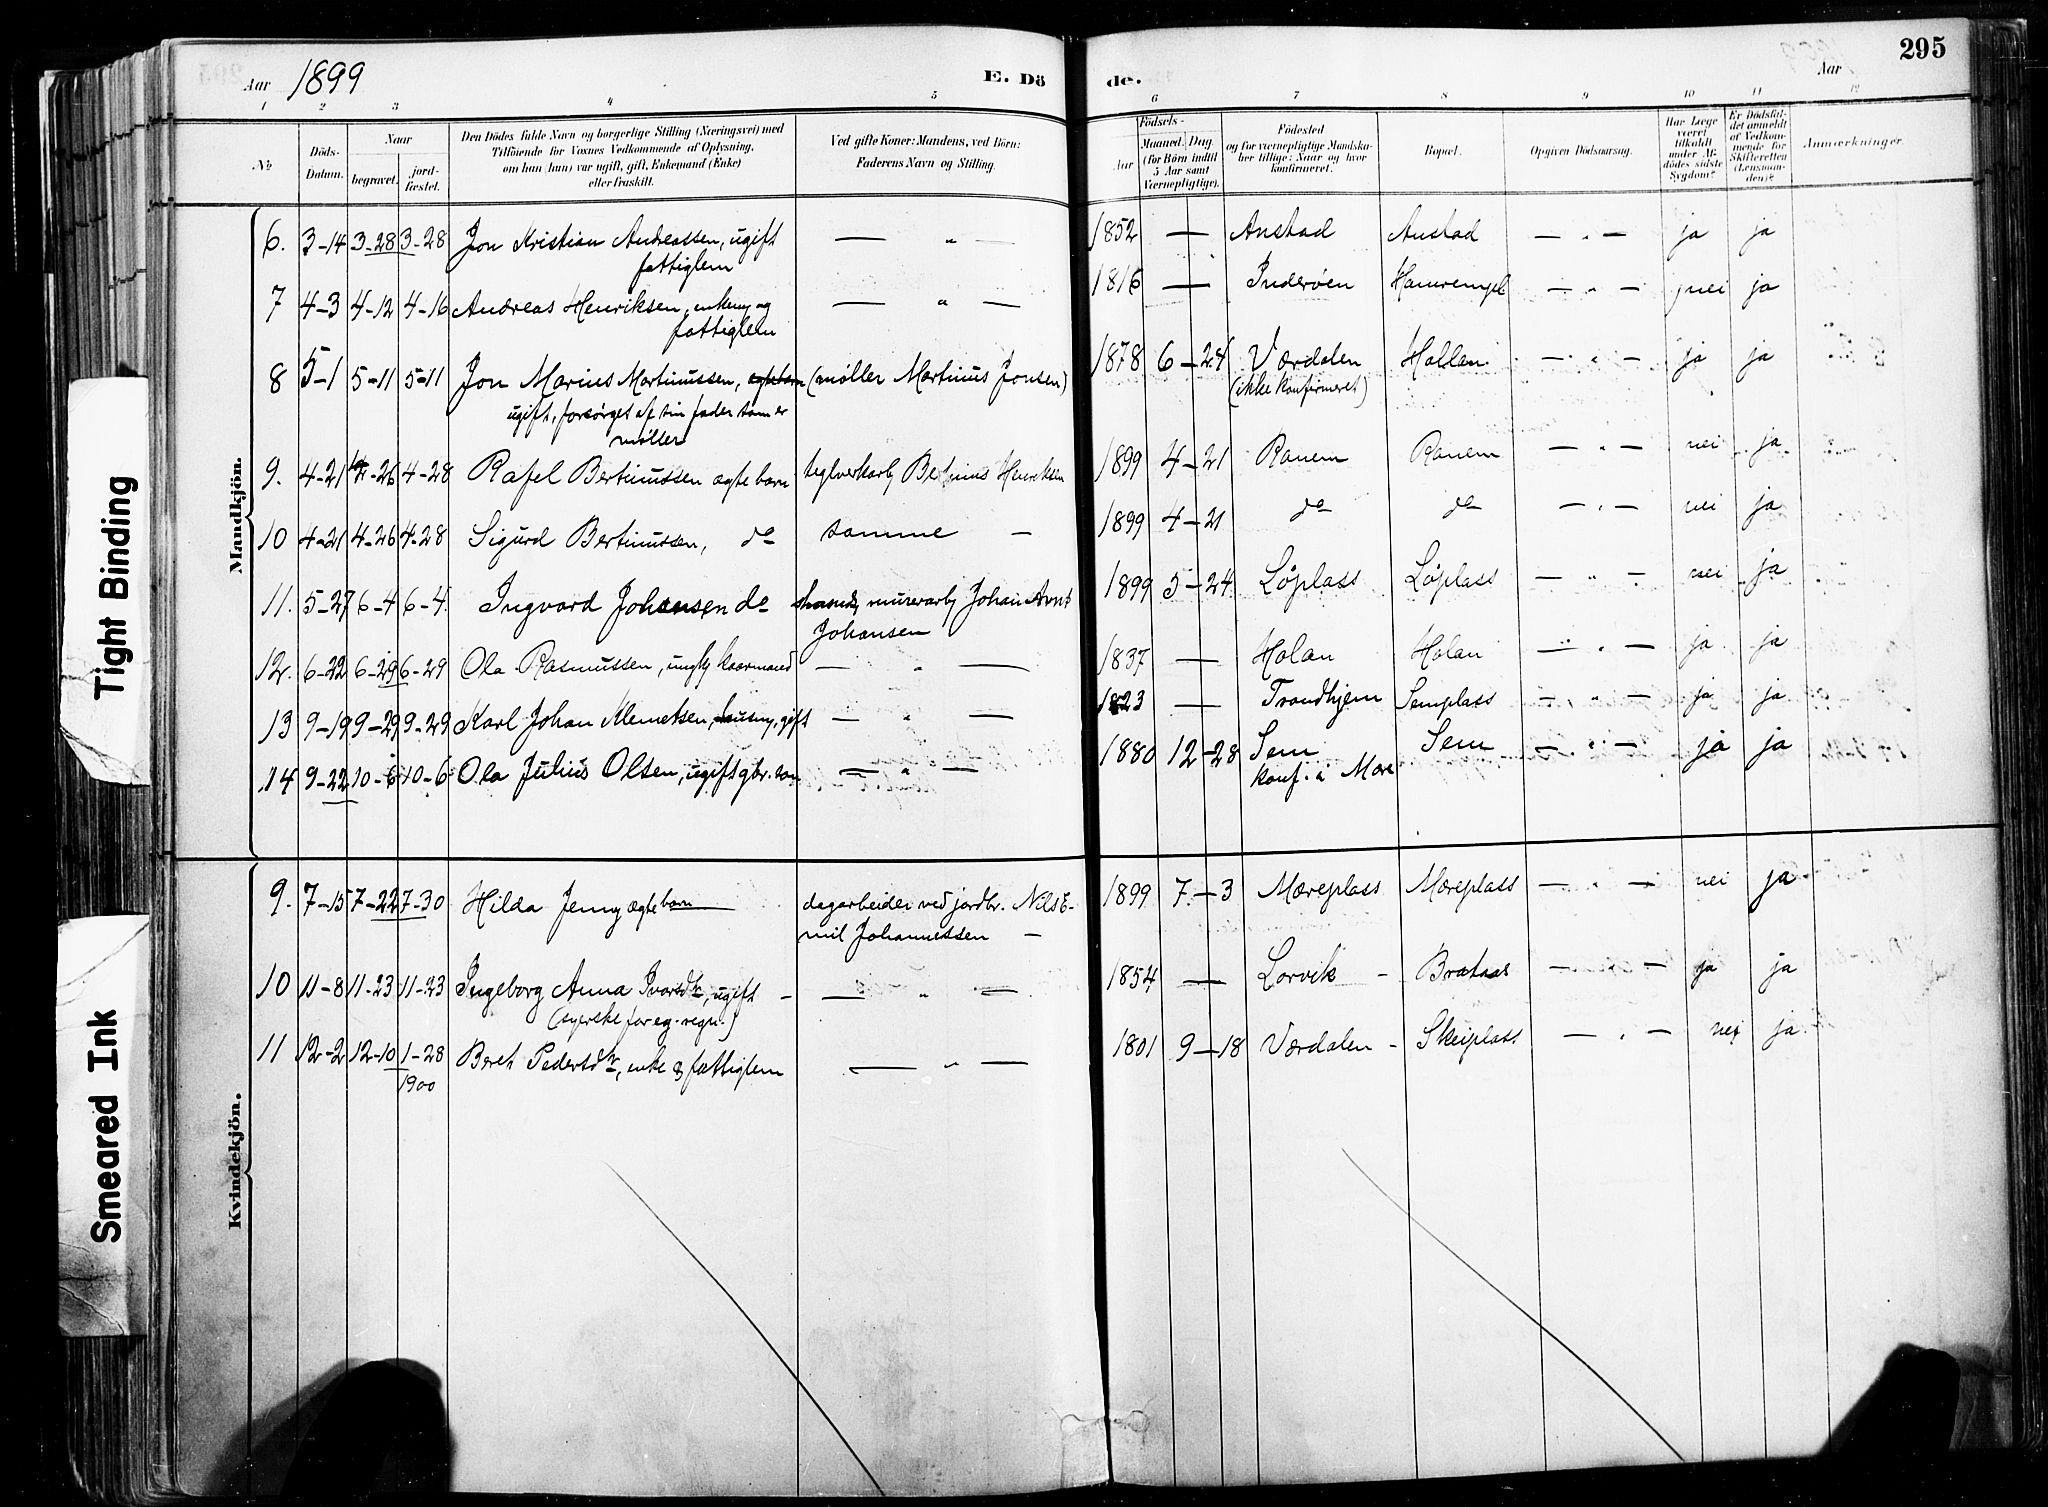 Aar 1899 E. Dö de. Aar 295
1 2 3 4 5 6 7 8 9 10 11 12
№ Döds-Datum. Naar begravet. jord-fæstet. Den Dödes fulde Navn og borgerlige Stilling (Næringsvei) med Tilföiende for Voxnes Vedkommende af Oplysning, om han (hun) var ugift, gift, Enkemand (Enke) eller fraskilt. Ved gifte Koner: Mandens, ved Börn: Faderens Navn og Stilling. Födsels- Aar Maaned. Dag. (for Börn indtil 5 Aar samt Værnepligtige). Födested og for værnepligtige Mandskaber tillige: Naar og hvor konfirmeret. Bopæl. Opgiven Dödsaarsag. Har Læge været tilkaldt under Afdödes sidste Sygdom? Er Dödsfaldet anmeldt af Vedkommende for Skifteretten (Lensmanden)? Anmærkninger.
Mandkjön.
6. 3-14 3-28 3-28 Jon Kristian Andreassen, ugift — " — 1852 — Anstad Anstad — " — ja ja
fattiglem
7 4-3 4-12 4-16 Andreas Henriksen, enkem. og — " — 1816 — Inderöen Hamrempl — " — nei ja
fattiglem
8 5-1 5-11 5-11 Jon Marius Martinussen, ægtebarn (møller Martinus Jonsen) 1878 6-24 Værdalen Hallan — " — ja ja
ugift, forsørget af sin fader som er (ikke konfirmeret)
møller
9. 4-21 4-26 4-28 Rafel Bertinussen ægte barn teglverkarb. Bertinus Henriksen 1899 4-21 Ranem Ranem — " — nei ja
10 4-21 4-26 4-28 Sigurd Bertinussen, do samme — 1899 4-21 do do — " — nei ja
11. 5-27 6-4 6-4. Ingvard Johansen do murerarb. Johan Arnt 1899 5-24 Löplass Löplass — " — nei ja
Johansen
12. 6-22 6-29 6-29 Ola Rasmussen, ungk. kaarmand — " — 1837 — Holan Holan — " — ja ja
13 9-19 9-29 9-29 Karl Johan Klemetsen, husm., gift — " — 1823 — Trondhjem Semplass — " — ja ja
14 9-22 10-6 10-6 Ola Julius Olsen, ugift gbr. søn — " — 1880 12-28 Sem Sem — " — ja ja
konf. i Mære
Kvindekjön.
9. 7-15 7-22 7-30 Hilda Jenny ægte barn dagarbeider ved jordbr. Nils E- 1899 7-3 Mæreplass Mæreplass — " — nei ja
mil Johannessen —
10 11-8 11-23 11-23 Ingeborg Anna Ivarsdtr, ugift — " — 1854 — Lorvik - Brataas — " — ja ja
(syerske for eg. regn.)
11 12-2 12-10 1-28 Beret Pedersdtr, enke & fattiglem — " — 1801 9-18 Værdalen - Skeiplass — " — nei ja
1900
Tight Binding
Smeared Ink